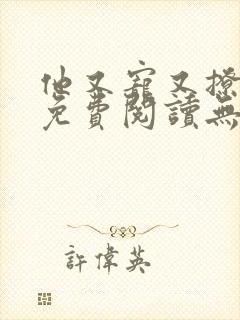 他又寵又撩
免費閱讀無
許偉英